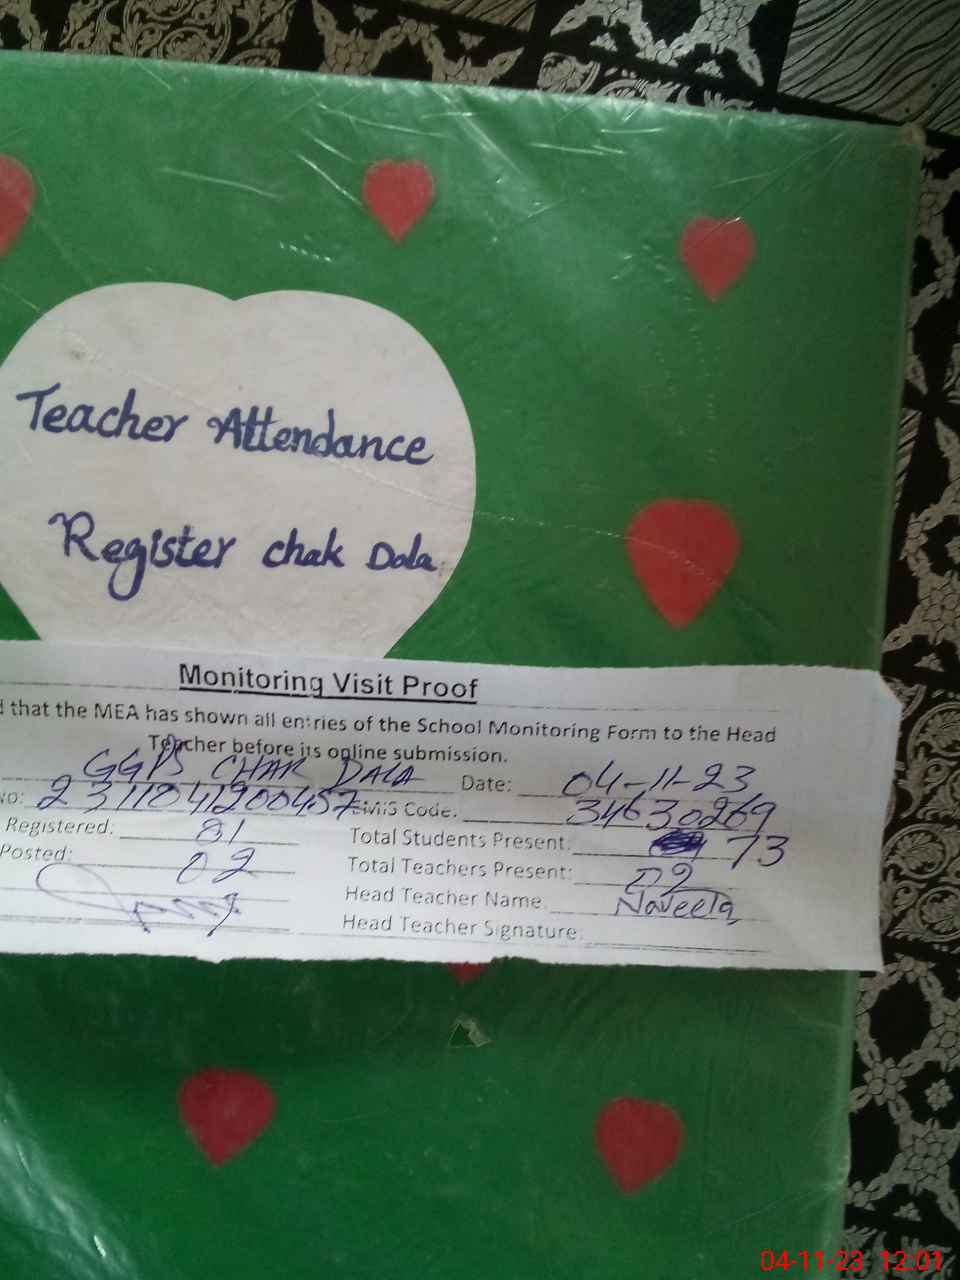 Teacher Attendance
Register chak Dala
Monitoring Visit Proof
that the MEA has shown all entries of the School Monitoring Form to the Head
Teacher before its online submission.
GGPS CHAK DALA Date: 04-11-23
No: 2311041200457 EMIS Code. 34630269
Registered: 81 Total Students Present: 73
Posted: 02 Total Teachers Present: 02
Head Teacher Name. Naveela
Head Teacher Signature:
04-11-23 12:01